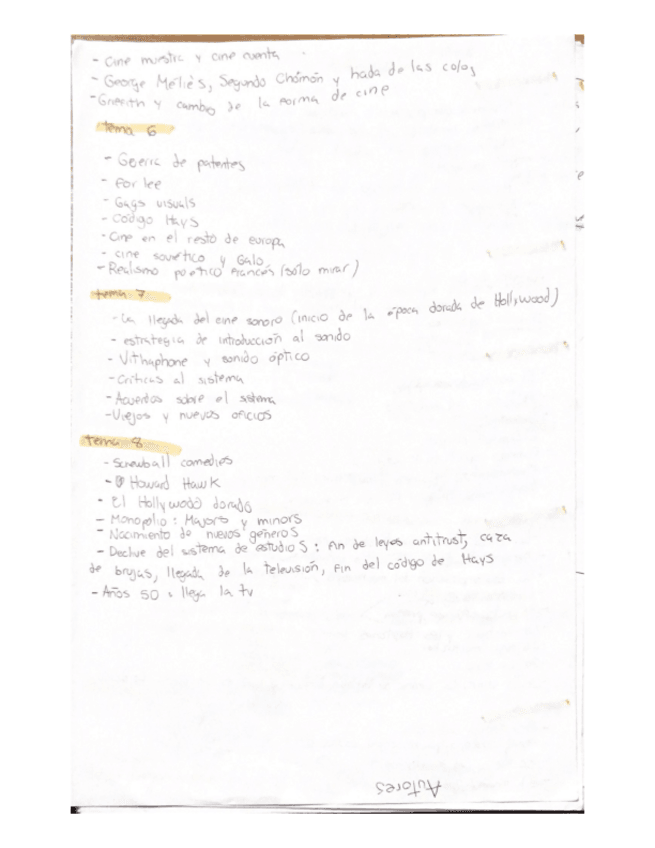 - Cine muestra y cine cuenta
- George Méliès, Segundo Chomón y hada de las coles
- Griffith y cambio de la forma de cine
tema 6
- Guerra de patentes
- for lee
- Gags visuals
- Código Hays
- Cine en el resto de europa
- cine soviético y Galo
- Realismo poetico francés (sólo mirar)
tema 7
- La llegada del cine sonoro (inicio de la época dorada de Hollywood)
- estrategia de introducción al sonido
- Vithaphone y sonido óptico
- Críticas al sistema
- Acuerdos sobre el sistema
- Viejos y nuevos oficios
tema 8
- Screwball comedies
- Howard Hawk
- El Hollywood dorado
- Monopolio: Majors y minors
- Nacimiento de nuevos géneros
- Declive del sistema de estudios: fin de leyes antitrust, caza
de brujas, llegada de la televisión, fin del código de Hays
- Años 50: llega la tv
Autores